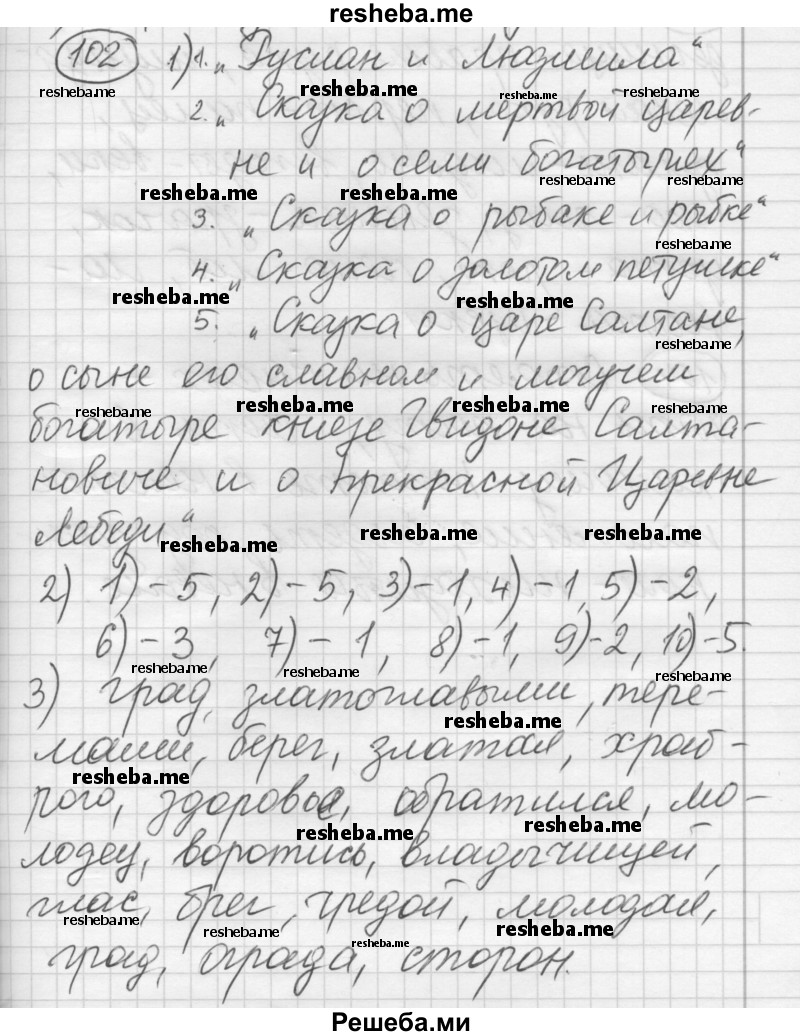 resheba.me
102 1) 1. „Руслан и Людмила"
resheba.me resheba.me resheba.me
2. „Сказка о мертвой царев-
не и о семи богатырях"
resheba.me resheba.me
resheba.me resheba.me
3. „Сказка о рыбаке и рыбке"
resheba.me
4. „Сказка о золотом петушке"
resheba.me resheba.me
5. „Сказка о царе Салтане,
resheba.me
о сыне его славном и могучем
resheba.me resheba.me resheba.me resheba.me
богатыре князе Гвидоне Салта-
новиче и о прекрасной Царевне
Лебеди"
resheba.me resheba.me resheba.me
2) 1)-5, 2)-5, 3)-1, 4)-1, 5)-2,
6)-3, 7)-1, 8)-1, 9)-2, 10)-5.
resheba.me resheba.me resheba.me
3) град, златоглавыми, тере-
resheba.me
мами, берег, златая, храб-
resheba.me
рого, здоровье, обратился, мо-
resheba.me resheba.me
лодец, воротись, владычицей,
глас, брег, чредой, молодая,
resheba.me resheba.me resheba.me resheba.me
град, ограда, сторон.
Решеба.ми